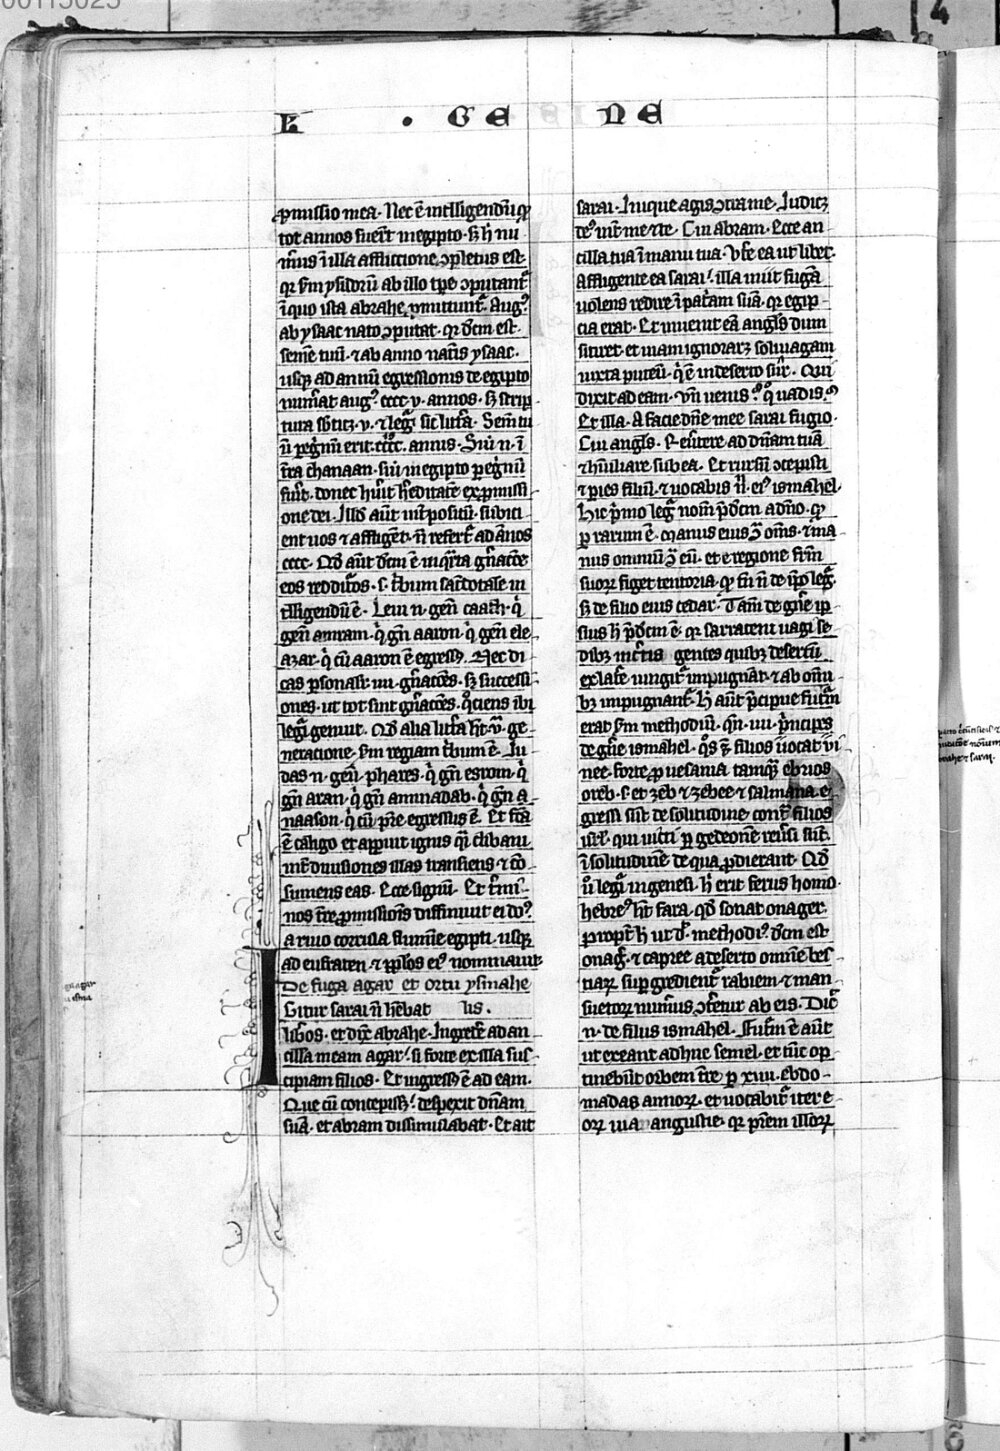 00115025
4
K . GE NE
ꝓmissio mea. Nec ē intelligendū qͥ
tot annos fuerūt in egipto. sꝫ hͦ nu
mus ī illa afflictione ɔpletus est.
qꝛ sm̄ ysidorū ab illo tꝑe ɔputant᷑
ī quo ista abrahe ꝓmittunt᷑. Augꝰ
ab ysaac nato ɔputat. qꝛ dcm̄ est.
semē tuū. ⁊ ab anno natiuit̄is ysaac.
usqꝫ ad annū egressionis de egipto
numerat augꝰ. cccc.v. annos. sꝫ scrip
tura .v. ⁊ legit᷑ sic litt̄a. Semē tu
ū ꝑegrinū erit. cccc. annis. Siue .n. ī
t̄ra chanaan. siue in egipto ꝑegrinū
fuit. donec hūit hereditatē ex ꝓmissi
one dei. Illud aūt int̄positū. subici
ent uos ⁊ affligēt. nō refert᷑ ad annos
cccc. Qd̄ aūt dcm̄ ē in quarta gn̄atōe
eos reddituros. s. tribum sacerdotalē in
telligendū ē. Leui .n. genuit caath. qͥ
gen̄ amram. qͥ gn̄ aaron. qͥ gen̄ ele
azar. qͥ cū aaron ē egressꝰ. Nec di
cas ꝑsonas iiii. gn̄atōes. sꝫ successi
ones. ut tot sint gn̄atōes. qͦciens ibi
legit᷑ genuit. Qd̄ alia litt̄a hꝫ .v. ge
neratione. sm̄ regiam tribum ē. Iu
das .n. gen̄ phares. qͥ gn̄ esrom. qͥ
gn̄ aran. qͥ gn̄ aminadab. qͥ gn̄ a
naason. qͥ cū pr̄e egressus ē. Et fc̄a
ē caligo et apparuit ignis qͣi clibani
int̄ diuisiones illas transiens ⁊ cō
sumens eas. Ecce signū. Et t̄mi
nos t̄re ꝓmissiōis diffiniuit ei dn̄s
a riuo corricia flumīe egipti. usqꝫ
ad eufraten. ⁊ pp̄los eiꝰ nominauit.
De fuga agar et ortu ysmahe
Igitur sarai nō hēbat lis.
libͦos. et dix̄ abrahe. Ingrede᷑ ad an
cillā meam agar. si forte ex illa sus
cipiam filios. Et ingressꝰ ē ad eam.
Que cū concepissꝫ. despexit dn̄am
suā. et abram dissimulabat. Et ait
sarai. Inique agis ɔtra me. Iudicꝫ
deꝰ int̄ me ⁊ te. Cui abram. Ecce an
cilla tua ī manu tua. Vt̄e ea ut libet.
Affligente ea sarai. illa iniit fugā
uolens redire ī patriam suā. qꝛ egip
cia erat. Et inuenit eā angl̄s dum
sitiret. et uiam ignorarꝫ soliuagam
iuxta puteū. qͥ ē in deserto sur. Qui
dixit ad eam. vn̄ uenis. ⁊ qͦ uadis.
Et illa. A facie dn̄e mee sarai fugio.
Cui angl̄s. Reūtere ad dn̄am tuā
⁊ humiliare sub ea. Et rursū ɔcepisti
⁊ paries filiū. ⁊ uocabis nōm eiꝰ ismahel.
Hic p̄mo legit᷑ nomē p̄dcm̄ a dn̄o. qͥ
ꝑ rarum ē. Manus eius ɔ̄ om̄s. ⁊ ma
nus omniū ɔ̄ eū. et e regione fr̄m
suoꝝ figet tentoria. qͦ factū nō de ip̄o legit᷑.
sꝫ de filio eius cedar. Tam̄ de gn̄e ip
sius hͦ p̄dcm̄ ē. qꝛ sarraceni uagi se
dibꝫ incertis gentes quibꝫ desertū
ex lat̄e iungit᷑ impugnāt. ⁊ ab omi
bꝫ impugnant᷑. hͦ aūt p̄cipue futurū
erat sm̄ methodiū. qn̄ .iiii. p̄ncipes
de gn̄e ismahel. qͦs ⁊ filios uocat vi
nee. forte ꝓ uesania tamqͣ ebrios
oreb. s. et zeb ⁊ zebee ⁊ salmana. e
gressi sūt de solitudine cont̄ filios
isrl̄. qui uicti ꝑ gedeonē reūsi sūt.
ī solitudinē de qua ꝓdierant. Qd̄
ū legit᷑ in genesi. hͥ erit ferus homo.
hebreꝰ hꝫ fara. qd̄ sonat onager.
Propt̄ hͦ ut dͬ methodiꝰ. dcm̄ est
onagi. ⁊ capree a deserto omnē bes
tiaꝝ suꝑgredient᷑ rabiem. ⁊ man
suetoꝝ numūs ɔteret᷑ ab eis. Dic̄
.n. de filiis ismahel. Futur̄ ē aūt
ut exeant adhuc semel. et tūc op
tinebūt orbem t̄re ꝑ xiiii. ebdo
madas annoꝝ. et uocabit᷑ iter e
oꝝ uia angustie. qꝛ pr̄em illoꝝ